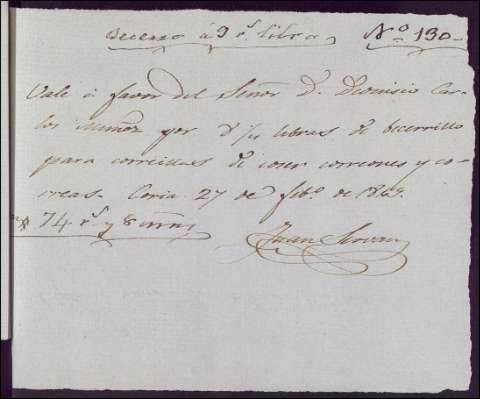 Becerro á 9 rs. libra Nº 130
Vale á favor del Señor D. Dionisio Car-
los Muñoz por libras de becerrillo
para correillas de coser correones y co-
rreas. Coria 27 de febo. de 1869.
74 rs. y 8
Juan